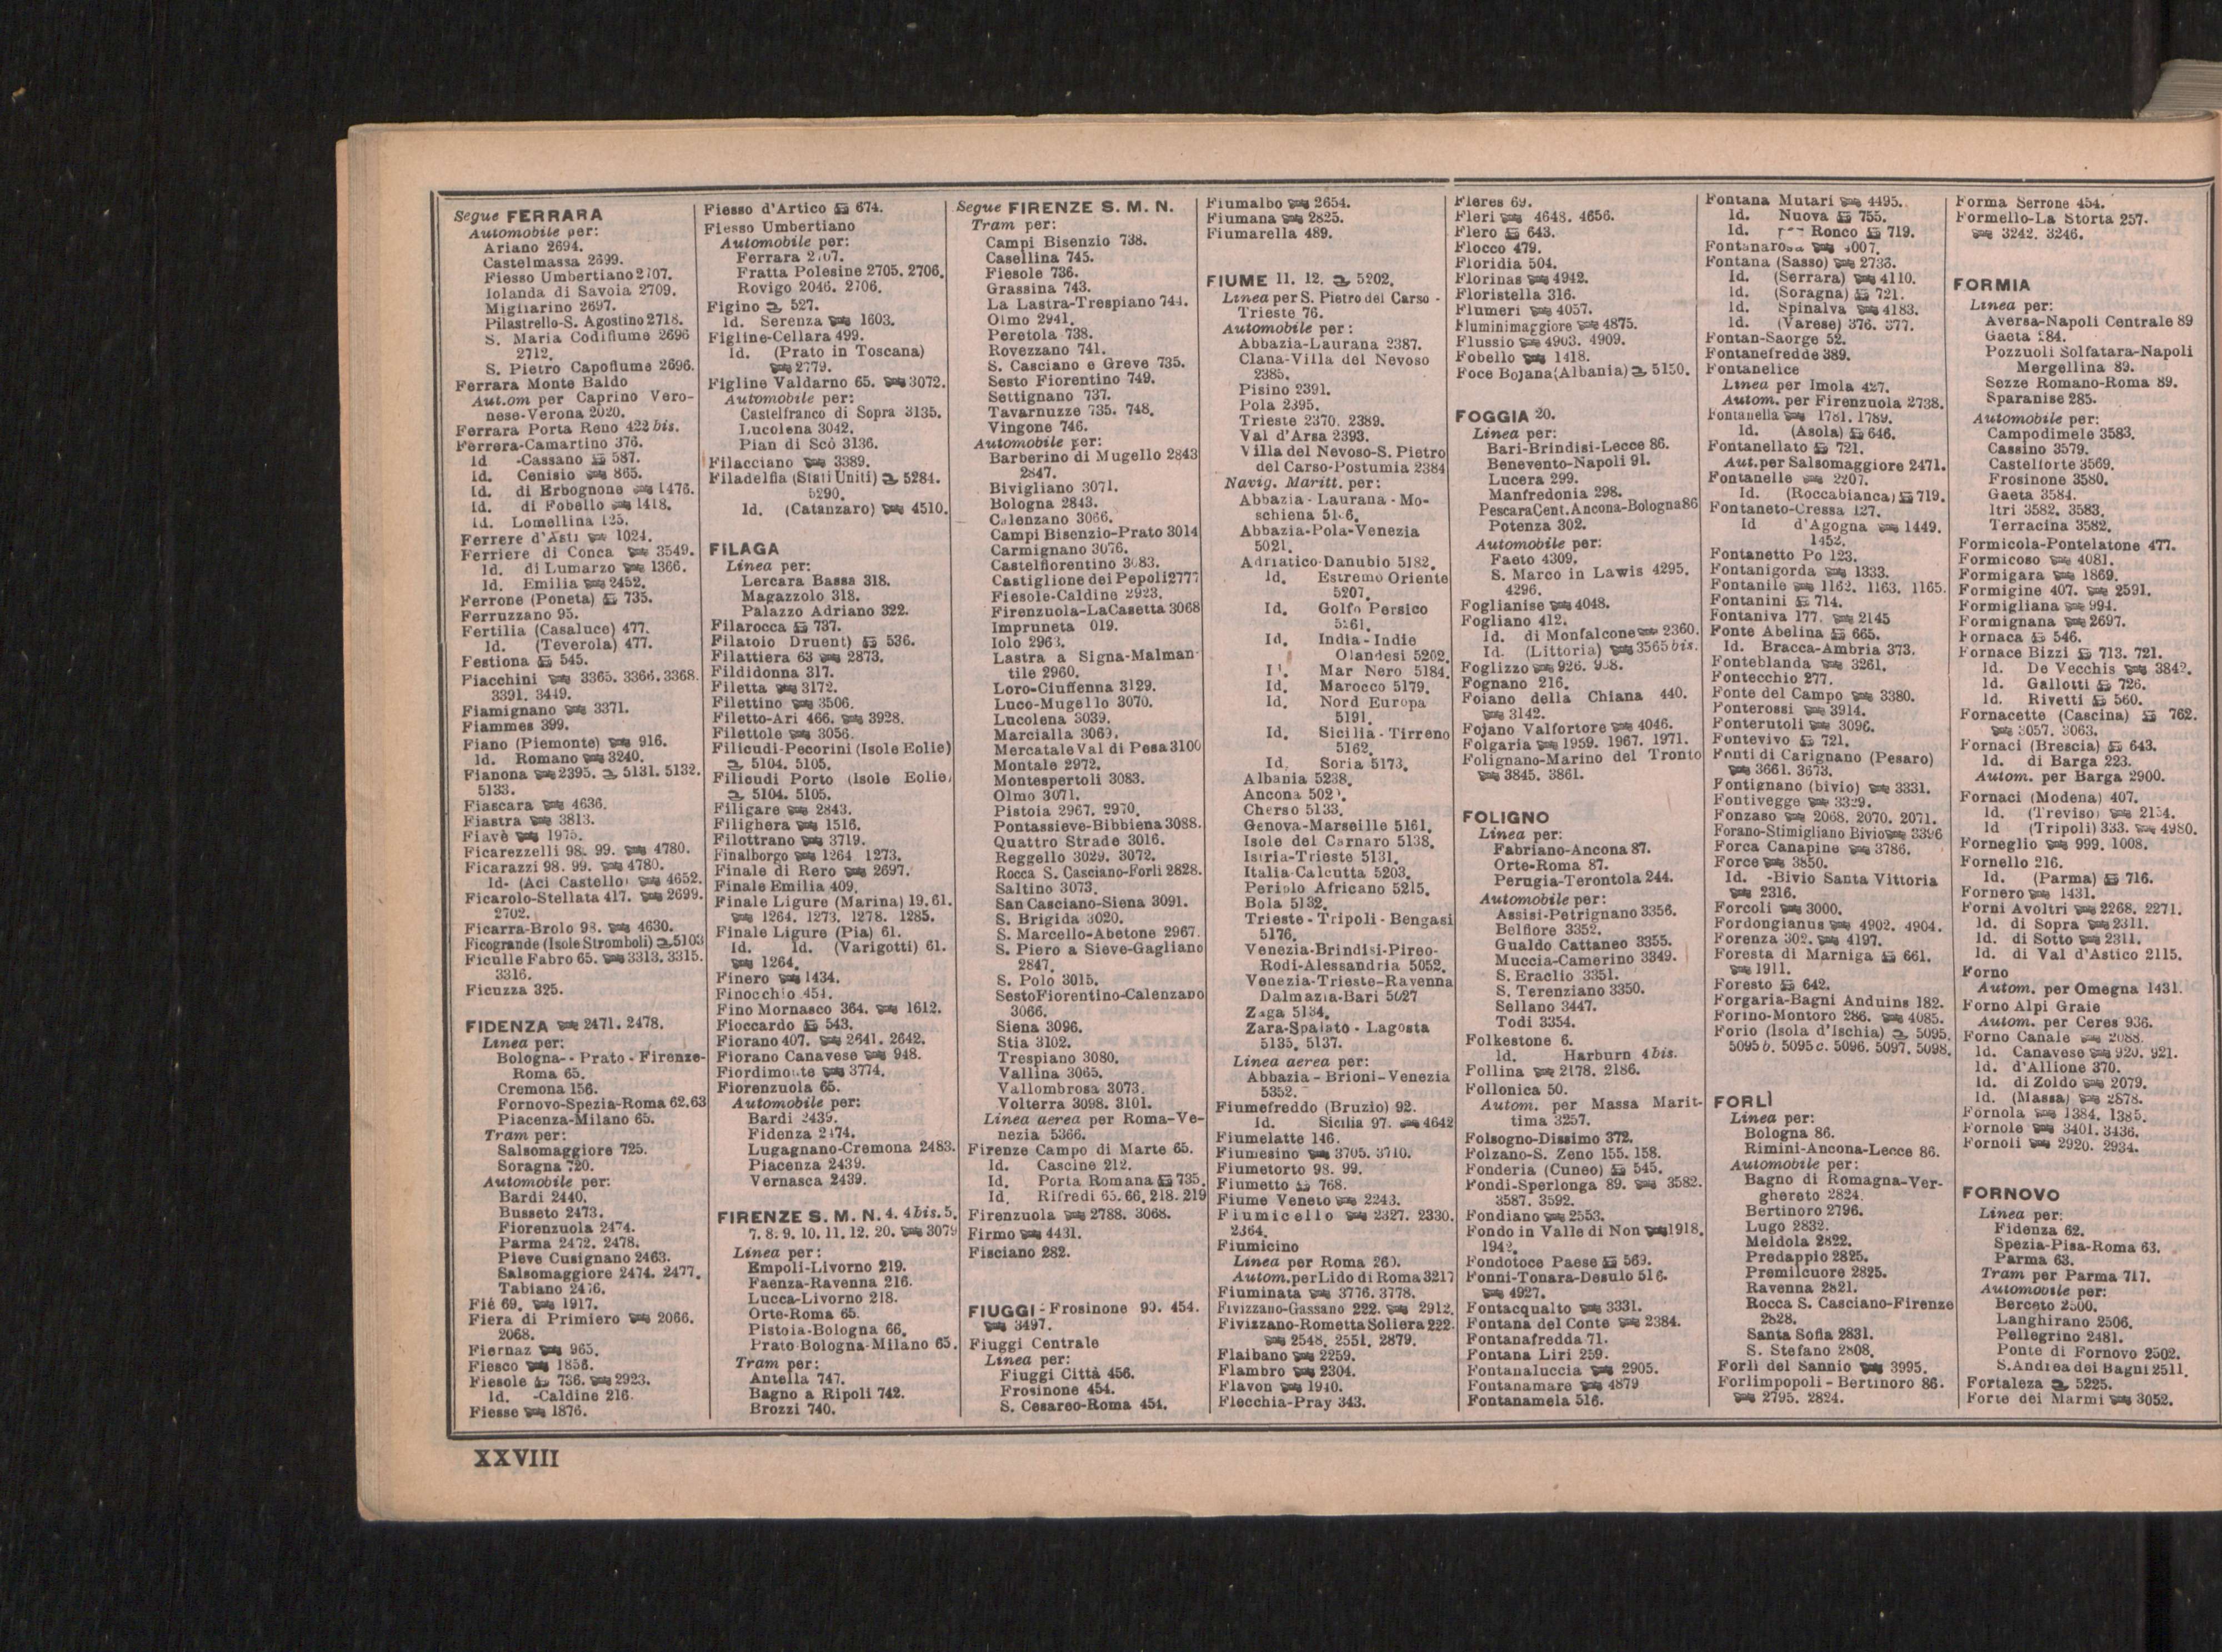 Segue FERRARA
Automobile per:
Ariano 2694.
Castelmassa 2699.
Fiesso Umbertiano 2707.
Iolanda di Savoia 2709.
Migliarino 2697.
Pilastrello-S. Agostino 2718.
S. Maria Codiflume 2696
2712.
S. Pietro Capoflume 2696.
Ferrara Monte Baldo
Aut.om per Caprino Vero-
nese-Verona 2020.
Ferrara Porta Reno 422 bis.
Ferrera-Camartino 376.
Id -Cassano 587.
Id. Cenisio 865.
Id. di Erbognone 1476.
Id. di Fobello 1418.
Id. Lomellina 125.
Ferrere d'Asti 1024.
Ferriere di Conca 3549.
Id. di Lumarzo 1366.
Id. Emilia 2452.
Ferrone (Poneta) 735.
Ferruzzano 95.
Fertilia (Casaluce) 477.
Id. (Teverola) 477.
Festiona 545.
Fiacchini 3365. 3366. 3368.
3391. 3449.
Fiamignano 3371.
Fiammes 399.
Fiano (Piemonte) 916.
Id. Romano 3240.
Fianona 2395. 5131. 5132.
5133.
Fiascara 4636.
Fiastra 3813.
Fiavè 1975.
Ficarezzelli 98. 99. 4780.
Ficarazzi 98. 99. 4780.
Id. (Aci Castello) 4652.
Ficarolo-Stellata 417. 2699.
2702.
Ficarra-Brolo 98. 4630.
Ficogrande (Isole Stromboli) 5103
Ficulle Fabro 65. 3313. 3315.
3316.
Ficuzza 325.
FIDENZA 2471. 2478.
Linea per:
Bologna-Prato-Firenze-
Roma 65.
Cremona 156.
Fornovo-Spezia-Roma 62.63
Piacenza-Milano 65.
Tram per:
Salsomaggiore 725.
Soragna 720.
Automobile per:
Bardi 2440.
Busseto 2473.
Fiorenzuola 2474.
Parma 2472. 2478.
Pieve Cusignano 2463.
Salsomaggiore 2474. 2477.
Tabiano 2476.
Fiè 69. 1917.
Fiera di Primiero 2066.
2068.
Fiernaz 965.
Fiesco 1856.
Fiesole 736. 2923.
Id. -Caldine 216.
Fiesse 1876.
Fiesso d'Artico 674.
Fiesso Umbertiano
Automobile per:
Ferrara 2707.
Fratta Polesine 2705. 2706.
Rovigo 2046. 2706.
Figino 527.
Id. Serenza 1603.
Figline-Cellara 499.
Id. (Prato in Toscana)
2779.
Figline Valdarno 65. 3072.
Automobile per:
Castelfranco di Sopra 3135.
Lucolena 3042.
Pian di Scò 3136.
Filacciano 3389.
Filadelfia (Stati Uniti) 5284.
5290.
Id. (Catanzaro) 4510.
FILAGA
Linea per:
Lercara Bassa 318.
Magazzolo 318.
Palazzo Adriano 322.
Filarocca 737.
Filatoio Druent) 536.
Filattiera 63 2873.
Fildidonna 317.
Filetta 3172.
Filettino 3506.
Filetto-Ari 466. 3928.
Filettole 3056.
Filicudi-Pecorini (Isole Eolie)
5104. 5105.
Filicudi Porto (Isole Eolie)
5104. 5105.
Filigare 2843.
Filighera 1516.
Filottrano 3719.
Finalborgo 1264 1273.
Finale di Rero 2697.
Finale Emilia 409.
Finale Ligure (Marina) 19.61.
1264. 1273. 1278. 1285.
Finale Ligure (Pia) 61.
Id. Id. (Varigotti) 61.
1264.
Finero 1434.
Finocchio 454.
Fino Mornasco 364. 1612.
Fioccardo 543.
Fiorano 407. 2641. 2642.
Fiorano Canavese 948.
Fiordimonte 3774.
Fiorenzuola 65.
Automobile per:
Bardi 2439.
Fidenza 2474.
Lugagnano-Cremona 2483.
Piacenza 2439.
Vernasca 2439.
FIRENZE S. M. N. 4. 4 bis. 5.
7. 8. 9. 10. 11. 12. 20. 3079
Linea per:
Empoli-Livorno 219.
Faenza-Ravenna 216.
Lucca-Livorno 218.
Orte-Roma 65.
Pistoia-Bologna 66.
Prato-Bologna-Milano 65.
Tram per:
Antella 747.
Bagno a Ripoli 742.
Brozzi 740.
Segue FIRENZE S. M. N.
Tram per:
Campi Bisenzio 738.
Casellina 745.
Fiesole 736.
Grassina 743.
La Lastra-Trespiano 744.
Olmo 2941.
Peretola 738.
Rovezzano 741.
S. Casciano e Greve 735.
Sesto Fiorentino 749.
Settignano 737.
Tavarnuzze 735. 748.
Vingone 746.
Automobile per:
Barberino di Mugello 2843
2847.
Bivigliano 3071.
Bologna 2843.
Calenzano 3066.
Campi Bisenzio-Prato 3014
Carmignano 3076.
Castelfiorentino 3083.
Castiglione dei Pepoli 2777
Fiesole-Caldine 2923.
Firenzuola-La Casetta 3068
Impruneta 019.
Iolo 2963.
Lastra a Signa-Malman
tile 2960.
Loro-Ciuffenna 3129.
Luco-Mugello 3070.
Lucolena 3039.
Marcialla 3069.
Mercatale Val di Pesa 3100
Montale 2972.
Montespertoli 3083.
Olmo 3071.
Pistoia 2967. 2970.
Pontassieve-Bibbiena 3088.
Quattro Strade 3016.
Reggello 3029. 3072.
Rocca S. Casciano-Forlì 2828.
Saltino 3073.
San Casciano-Siena 3091.
S. Brigida 3020.
S. Marcello-Abetone 2967.
S. Piero a Sieve-Gagliano
2847.
S. Polo 3015.
Sesto Fiorentino-Calenzano
3066.
Siena 3096.
Stia 3102.
Trespiano 3080.
Vallina 3065.
Vallombrosa 3073.
Volterra 3098. 3101.
Linea aerea per Roma-Ve-
nezia 5366.
Firenze Campo di Marte 65.
Id. Cascine 212.
Id. Porta Romana 735.
Id. Rifredi 65.66. 218. 219
Firenzuola 2788. 3068.
Firmo 4431.
Fisciano 282.
FIUGGI - Frosinone 90. 454.
3497.
Fiuggi Centrale
Linea per:
Fiuggi Città 456.
Frosinone 454.
S. Cesareo-Roma 454.
Fiumalbo 2654.
Fiumana 2825.
Fiumarella 489.
FIUME 11. 12. 5202.
Linea per S. Pietro del Carso -
Trieste 76.
Automobile per:
Abbazia-Laurana 2387.
Clana-Villa del Nevoso
2385.
Pisino 2391.
Pola 2395.
Trieste 2370. 2389.
Val d'Arsa 2393.
Villa del Nevoso-S. Pietro
del Carso-Postumia 2384
Navig. Maritt. per:
Abbazia - Laurana - Mo-
schiena
Abbazia-Pola-Venezia
5021.
Adriatico-Danubio 5182.
Id. Estremo Oriente
5207.
Id. Golfo Persico
5261.
Id. India-Indie
Olandesi 5202.
Mar Nero 5184.
Id. Marocco 5179.
Id. Nord Europa
5191.
Id. Sicilia-Tirreno
5162.
Id. Soria 5173.
Albania 5238.
Ancona
Cherso 5133.
Genova-Marseille 5161.
Isole del Carnaro 5138.
Istria-Trieste 5131.
Italia-Calcutta 5203.
Periplo Africano 5215.
Bola 5132.
Trieste-Tripoli-Bengasi
5176.
Venezia-Brindisi-Pireo-
Rodi-Alessandria 5052.
Venezia-Trieste-Ravenna
Dalmazia-Bari 5027
Zaga 5134.
Zara-Spalato - Lagosta
5135. 5137.
Linea aerea per:
Abbazia-Brioni-Venezia
5352.
Fiumefreddo (Bruzio) 92.
Id. Sicilia 97. 4642
Fiumelatte 146.
Fiumesino 3705. 3710.
Fiumetorto 98. 99.
Fiumetto 768.
Fiume Veneto 2243.
Fiumicello 2327. 2330.
2364.
Fiumicino
Linea per Roma 260.
Autom. per Lido di Roma 3217
Fiuminata 3776. 3778.
Fivizzano-Gassano 222. 2912.
Fivizzano-Rometta Soliera 222.
2548. 2551. 2879.
Flaibano 2259.
Flambro 2304.
Flavon 1940.
Flecchia-Pray 343.
Fleres 69.
Fleri 4648. 4656.
Flero 643.
Flocco 479.
Floridia 504.
Florinas 4942.
Floristella 316.
Flumeri 4057.
Fluminimaggiore 4875.
Flussio 4903. 4909.
Fobello 1418.
Foce Bojana (Albania) 5150.
FOGGIA 20.
Linea per:
Bari-Brindisi-Lecce 86.
Benevento-Napoli 91.
Lucera 299.
Manfredonia 298.
Pescara Cent. Ancona-Bologna 86
Potenza 302.
Automobile per:
Faeto 4309.
S. Marco in Lawis 4295.
4296.
Foglianise 4048.
Fogliano 412.
Id. di Monfalcone 2360.
Id. (Littoria) 3565 bis.
Foglizzo 926. 938.
Fognano 216.
Foiano della Chiana 440.
3142.
Fojano Valfortore 4046.
Folgaria 1959. 1967. 1971.
Folignano-Marino del Tronto
3845. 3861.
FOLIGNO
Linea per:
Fabriano-Ancona 87.
Orte-Roma 87.
Perugia-Terontola 244.
Automobile per:
Assisi-Petrignano 3356.
Belfiore 3352.
Gualdo Cattaneo 3355.
Muccia-Camerino 3349.
S. Eraclio 3351.
S. Terenziano 3350.
Sellano 3447.
Todi 3354.
Folkestone 6.
Id. Harburn 4 bis.
Follina 2178. 2186.
Follonica 50.
Autom. per Massa Marit-
tima 3257.
Folsogno-Dissimo 372.
Folzano-S. Zeno 155. 158.
Fonderia (Cuneo) 545.
Fondi-Sperlonga 89. 3582.
3587. 3592.
Fondiano 2553.
Fondo in Valle di Non 1918.
1942.
Fondotoce Paese 569.
Fonni-Tonara-Desulo 516.
4927.
Fontacqualto 3331.
Fontana del Conte 2384.
Fontanafredda 71.
Fontana Liri 259.
Fontanaluccia 2905.
Fontanamare 4879
Fontanamela 516.
Fontana Mutari 4495.
Id. Nuova 755.
Id. Ronco 719.
Fontanarosa 4007.
Fontana (Sasso) 2733.
Id. (Serrara) 4110.
Id. (Soragna) 721.
Id. Spinalva 4183.
Id. (Varese) 376. 377.
Fontan-Saorge 52.
Fontanefredde 389.
Fontanelice
Linea per Imola 427.
Autom. per Firenzuola 2738.
Fontanella 1781. 1789.
Id. (Asola) 646.
Fontanellato 721.
Aut. per Salsomaggiore 2471.
Fontanelle 2207.
Id. (Roccabianca) 719.
Fontaneto-Cressa 127.
Id d'Agogna 1449.
1452.
Fontanetto Po 123.
Fontanigorda 1333.
Fontanile 1162. 1163. 1165.
Fontanini 714.
Fontaniva 177. 2145
Fonte Abelina 665.
Id. Bracca-Ambria 373.
Fonteblanda 3261.
Fontecchio 277.
Fonte del Campo 3380.
Fonterossi 3914.
Fonterutoli 3096.
Fontevivo 721.
Fonti di Carignano (Pesaro)
3661. 3673.
Fontignano (bivio) 3331.
Fontivegge 3329.
Fonzaso 2068. 2070. 2071.
Forano-Stimigliano Bivio 3396
Forca Canapine 3786.
Force 3850.
Id. -Bivio Santa Vittoria
2316.
Forcoli 3000.
Fordongianus 4902. 4904.
Forenza 302. 4197.
Foresta di Marniga 661.
1911.
Foresto 642.
Forgaria-Bagni Anduins 182.
Forino-Montoro 286. 4085.
Forio (Isola d'Ischia) 5095.
5095 b. 5095 c. 5096. 5097. 5098.
FORLÌ
Linea per:
Bologna 86.
Rimini-Ancona-Lecce 86.
Automobile per:
Bagno di Romagna-Ver-
ghereto 2824.
Bertinoro 2796.
Lugo 2832.
Meldola 2822.
Predappio 2825.
Premilcuore 2825.
Ravenna 2821.
Rocca S. Casciano-Firenze
2828.
Santa Sofia 2831.
S. Stefano 2808.
Forlì del Sannio 3995.
Forlimpopoli - Bertinoro 86.
2795. 2824.
Forma Serrone 454.
Formello-La Storta 257.
3242. 3246.
FORMIA
Linea per:
Aversa-Napoli Centrale 89
Gaeta 284.
Pozzuoli Solfatara-Napoli
Mergellina 89.
Sezze Romano-Roma 89.
Sparanise 285.
Automobile per:
Campodimele 3583.
Cassino 3579.
Castelforte 3569.
Frosinone 3580.
Gaeta 3584.
Itri 3582. 3583.
Terracina 3582.
Formicola-Pontelatone 477.
Formicoso 4081.
Formigara 1869.
Formigine 407. 2591.
Formigliana 994.
Formignana 2697.
Fornaca 546.
Fornace Bizzi 713. 721.
Id. De Vecchis 3842.
Id. Gallotti 726.
Id. Rivetti 560.
Fornacette (Cascina) 762.
3057. 3063.
Fornaci (Brescia) 643.
Id. di Barga 223.
Autom. per Barga 2900.
Fornaci (Modena) 407.
Id. (Treviso) 2154.
Id (Tripoli) 333. 4980.
Forneglio 999. 1008.
Fornello 216.
Id. (Parma) 716.
Fornero 1431.
Forni Avoltri 2268. 2271.
Id. di Sopra 2311.
Id. di Sotto 2311.
Id. di Val d'Astico 2115.
Forno
Autom. per Omegna 1431.
Forno Alpi Graie
Autom. per Ceres 936.
Forno Canale 2088.
Id. Canavese 920. 921.
Id. d'Allione 370.
Id. di Zoldo 2079.
Id. (Massa) 2878.
Fornola 1384. 1385.
Fornole 3401. 3436.
Fornoli 2920. 2934.
FORNOVO
Linea per:
Fidenza 62.
Spezia-Pisa-Roma 63.
Parma 63.
Tram per Parma 717.
Automobile per:
Berceto 2500.
Langhirano 2506.
Pellegrino 2481.
Ponte di Fornovo 2502.
S. Andrea dei Bagni 2511.
Fortaleza 5225.
Forte dei Marmi 3052.
XXVIII